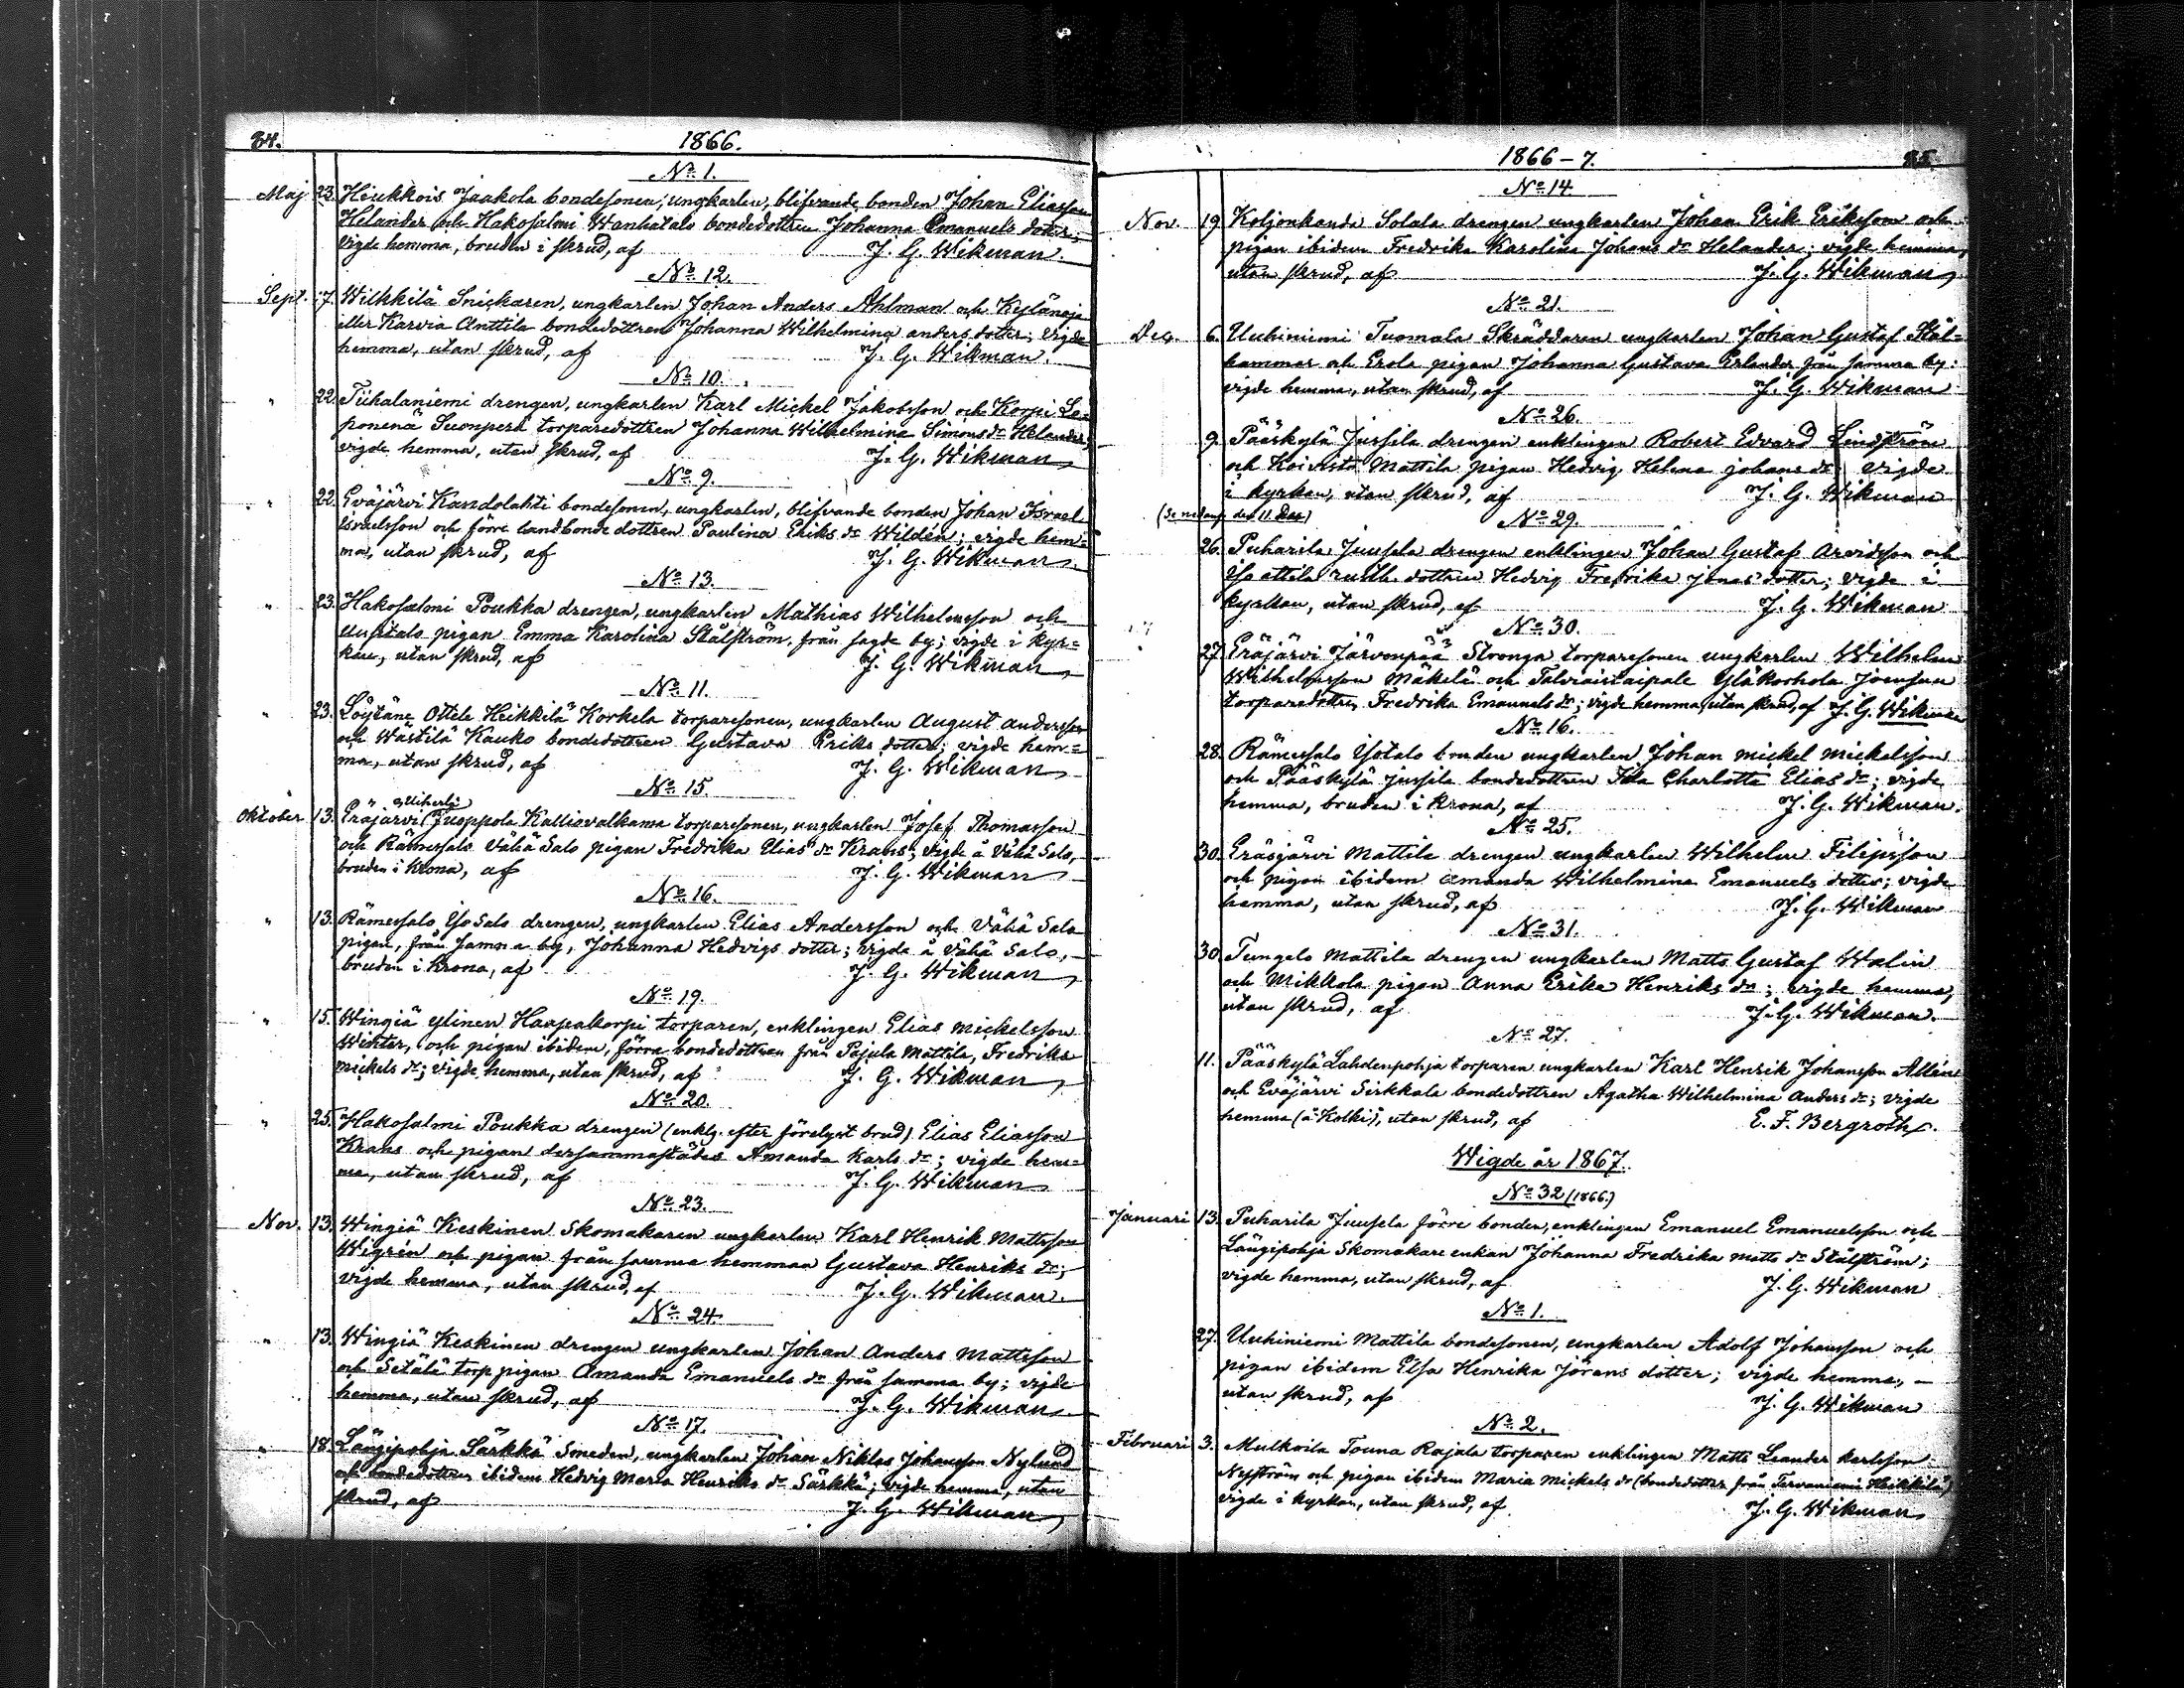 84.
1866.
No 1.
Maj 23. Hiukkois Jaakola bondesonen, ungkarlen, blifvande bonden Johan Eliasson
Helander och Hakosalmi Wanhatalo bondedottren Johanna Emanuels dotter;
vigde hemma, bruden i skrud, af J. G. Wikman.
No 12.
Sept. 7. Wilkkilä Snickaren, ungkarlen Johan Anders Ahlman och Kylänoja
eller Karvia Anttila bondedottren Johanna Wilhelmina Anders dotter; vigde
hemma, utan skrud, af J. G. Wikman.
No 10.
" 22. Tiihalaniemi drengen, ungkarlen Karl Mickel Jakobsson och Korpi Le-
ponenä Suonperä torparedottren Johanna Wilhelmina Simons dr Helander;
vigde hemma, utan skrud, af J. G. Wikman
No 9.
" 22. Eväjärvi Kandolahti bondesonen, ungkarlen, blifvande bonden Johan Israel
Israelsson och förre landbonde dottren Paulina Eriks dr Wildén; vigde hem-
ma, utan skrud, af J. G. Wikman.
No 13.
" 23. Hakosalmi Poukka drengen, ungkarlen Mathias Wilhelmsson och
Uusitalo pigan Emma Karolina Stålström, från sagde by; vigde i kyr-
kan, utan skrud, af J. G. Wikman
No 11.
" 23. Löytäne Ottela Heikkilä Korkela torparesonen, ungkarlen August Andersson
och Wästilä Kauko bondedottren Gustava Eriks dotter; vigde hem-
ma, utan skrud, af J. G. Wikman
No 15.
Oktober 13. Eräjärvi Juoppola Kalliovalkama torparesonen, ungkarlen Josef Thomasson
och Rämessalo Vähä Salo pigan Fredrika Elias dr Krans; vigde å Vähä Salo,
bruden i krona, af J. G. Wikman
No 16.
" 13. Rämessalo Iso Salo drengen, ungkarlen Elias Andersson och Vähä Salo
pigan, från samma by, Johanna Hedvigs dotter; vigde å Vähä Salo,
bruden i krona, af J. G. Wikman
No 19.
" 15. Wingiä Ylinen Haapakorpi torparen, enklingen Elias Mickelsson
Winter, och pigan ibidem, förra bondedottren från Pajula Mattila, Fredrika
Mickels dr; vigde hemma, utan skrud, af J. G. Wikman
No 20.
" 25. Hakosalmi Poukka drengen (enkly. efter förelyst brud) Elias Eliasson
Krans och pigan dersammastädes Amanda Karls dr; vigde hem-
ma, utan skrud, af J. G. Wikman
No 23.
Nov. 13. Wingiä Keskinen Skomakaren ungkarlen Karl Henrik Mattsson
Wigrén och pigan från samma hemman Gustava Henriks dr;
vigde hemma, utan skrud, af J. G. Wikman.
No 24.
" 13. Wingiä Keskinen drengen ungkarlen Johan Anders Mattsson
och Setälä torp pigan Amanda Emanuels dr från samma by; vigde
hemma, utan skrud, af J. G. Wikman
No 17.
" 18. Längipohja Särkkä Smeden, ungkarlen Johan Niklas Johansson Nylund
och bondedottren ibidem Hedvig Maria Henriks dr Särkkä; vigde hemma, utan
skrud, af J. G. Wikman
1866-7.
85.
No 14.
Nov. 19. Koljonkanda Solala drengen ungkarlen Johan Erik Eriksson och
pigan ibidem Fredrika Karolina Johans dr Helander; vigde hemma,
utan skrud, af J. G. Wikman
No 21.
Dec. 6. Uuhiniemi Tuomala Skräddaren ungkarlen Johan Gustaf Stål-
hammar och Erola pigan Johanna Gustava Erlander från samma by:
vigde hemma, utan skrud, af J. G. Wikman
No 26.
9. Pääskylä Jussila drengen enklingen Robert Edvard Lindström
och Koivisto Mattila pigan Hedvig Helena Johans dr vigde
i kyrkan, utan skrud, af J. G. Wikman
(Se nedanf den 11 Dec)
No 29.
26. Puharila Juusela drengen enklingen Johan Gustaf Arvidsson och
Iso Attila rusth. dottren Hedvig Fredrika Jonas dotter; vigde i
kyrkan, utan skrud, af J. G. Wikman
No 30.
27. Eräjärvi Järvenpää Stronga torparesonen ungkarlen Wilhelm
Wilhelmsson Mäkelä och Talviaistaipale Yläkorhola Joensuu
torparedottren Fredrika Emanuels dr; vigde hemma, utan skrud, af J. G. Wikman
No 16.
28. Rämessalo Isotalo bonden ungkarlen Johan Mickel Mickelsson
och Pääskylä Jussila bondedottren Ida Charlotta Elias dr; vigde
hemma, bruden i krona, af J. G. Wikman.
No 25.
30. Eräsjärvi Mattila drengen ungkarlen Wilhelm Filipsson
och pigan ibidem Amanda Wilhelmina Emanuels dotter; vigde
hemma, utan skrud, af J. G. Wikman
No 31.
30. Tungelo Mattila drengen ungkarlen Matts Gustaf Walin
och Mikkola pigan Anna Erika Henriks dr; vigde hemma,
utan skrud, af J. G. Wikman.
No 27.
11. Pääskylä Lahdenpohja torparen ungkarlen Karl Henrik Johansson Allén
och Eväjärvi Sirkkala bondedottren Agatha Wilhelmina Anders dr; vigde
hemma (å Kolki), utan skrud, af E. F. Bergroth.
Wigde år 1867.
No 32 (1866.)
Januari 13. Puharila Juusela förre bonden, enklingen Emanuel Emanuelsson och
Längipohja Skomakare enkan Johanna Fredrika Matts dr Stålström;
vigde hemma, utan skrud, af J. G. Wikman
No 1.
27. Uuhiniemi Mattila bondesonen, ungkarlen Adolf Johansson och
pigan ibidem Elsa Henrika Jörans dotter; vigde hemma,
utan skrud, af J. G. Wikman
No 2.
Februari 3. Mulkoila Touna Rajala torparen enklingen Matts Leander Karlsson
Nyström och pigan ibidem Maria Mickels dr (bondedotter från Tervaniemi Heikkilä)
vigde i kyrkan, utan skrud, af J. G. Wikman